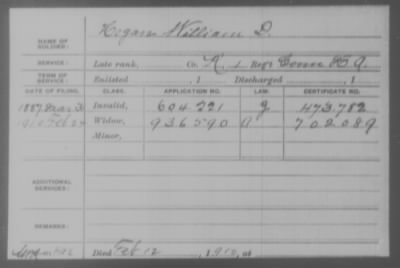 NAME OF SOLDIER: Hogan William D.
SERVICE: Late rank, Co. K, 1 Reg't Conn H A.
TERM OF SERVICE: Enlisted , 1 Discharged , 1
DATE OF FILING. CLASS. APPLICATION NO. LAW. CERTIFICATE NO.
1887 Mar 3 Invalid, 604 221 g 473.782
Feb 24 Widow, 936590 a 702089
Minor,
ADDITIONAL SERVICES:
REMARKS:
Died Feb 12, 19, at